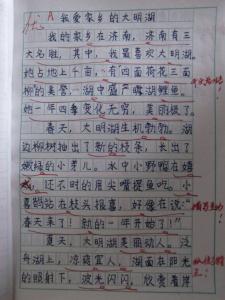 优 A
我爱家乡的大明湖
我的家乡在济南,济南有三
大名胜,其中,我最喜欢大明湖。
她占地上千亩,有四面荷花三面
柳的美誉,湖中盛产露湖鲤鱼。
她一年四季变化无穷,美丽极了。
春天,大明湖生机勃勃。湖
边柳树抽出了新的枝条,长出了
嫩绿的小芽儿。水中小野鸭在嬉
戏,还不时的用尖嘴捉鱼吃。小
喜鹊站在枝头报喜,好像在说:“
春天来了!新的一年开始了!”
夏天,大明湖美丽动人。泛
舟湖上,凉爽宜人。湖面在阳光
的照射下,波光闪闪,欣赏着岸